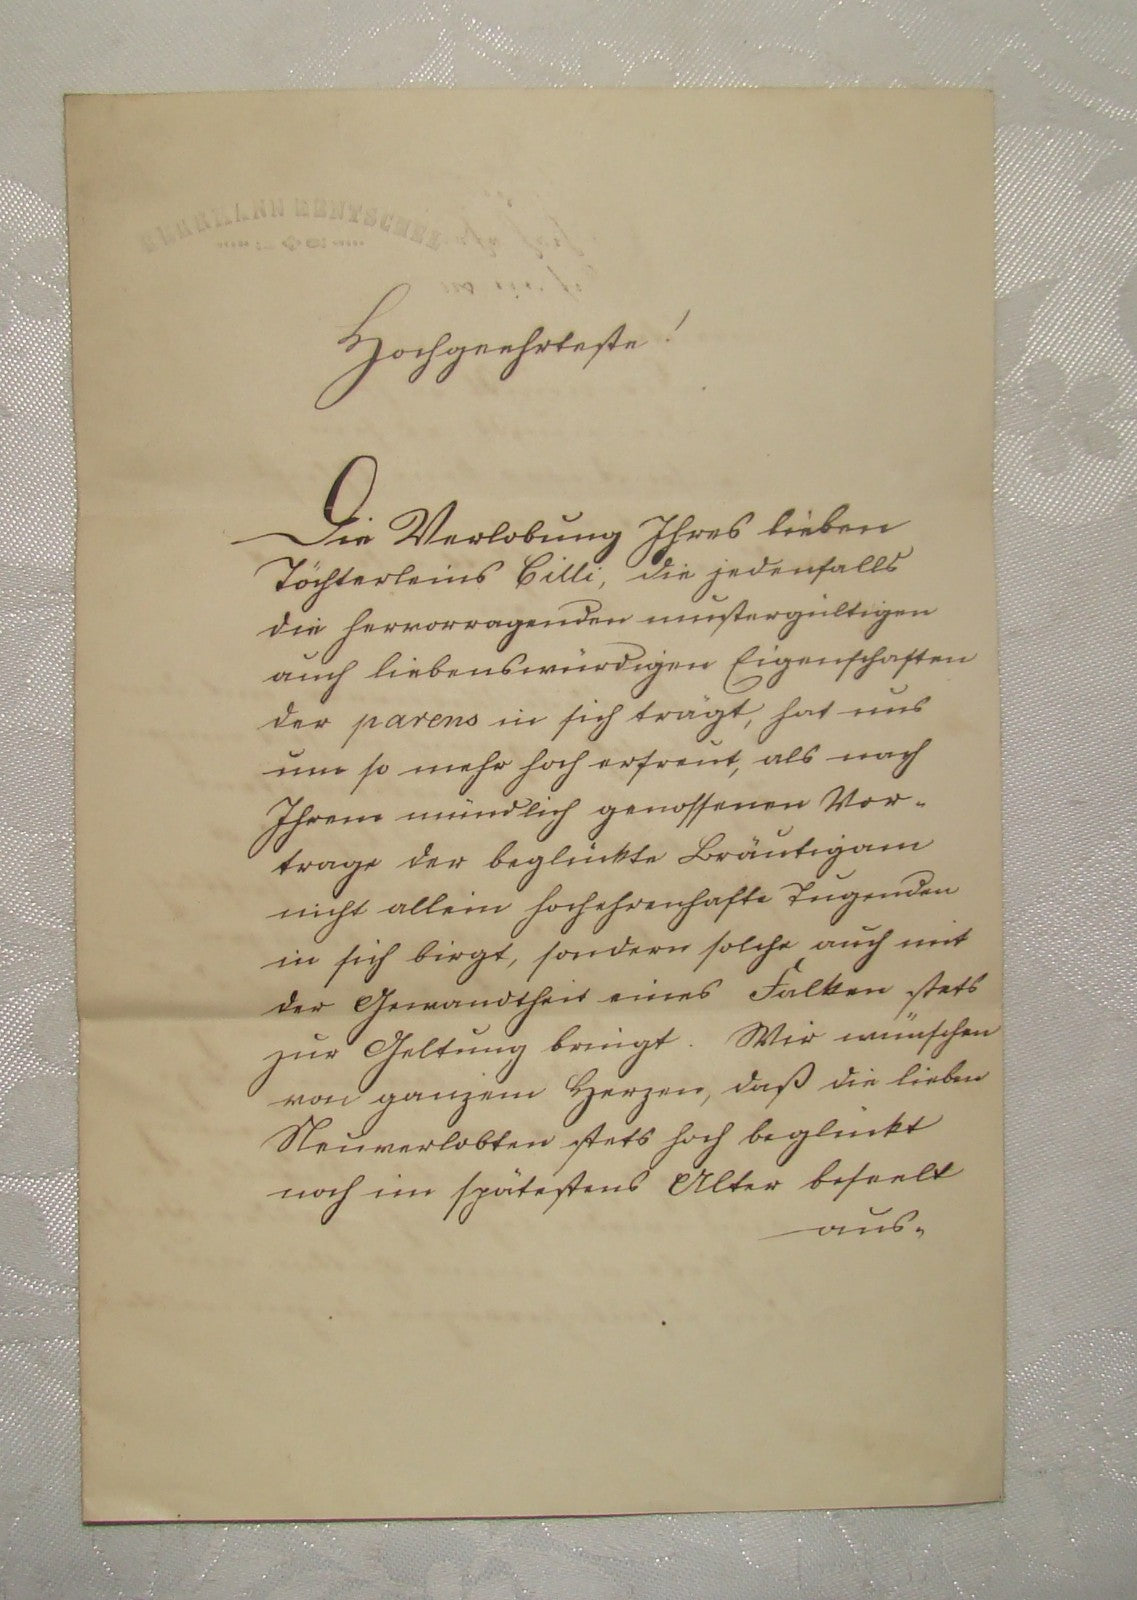 HERRMANN HENTSCHEL
Hochgeehrteste!
Die Verlobung Ihres lieben
Töchterleins Cilli, die jedenfalls
die hervorragenden mustergültigen
auch liebenswürdigen Eigenschaften
der parens in sich trägt, hat uns
um so mehr hoch erfreut, als nach
Ihrem mündlich genossenen Vor-
trage der beglückte Bräutigam
nicht allein hochehrenhafte Tugenden
in sich birgt, sondern solche auch mit
der Gewandtheit eines Falken stets
zur Geltung bringt. Wir wünschen
von ganzem Herzen, daß die lieben
Neuverlobten stets hoch beglückt
noch im spätestens Alter beseelt
aus-